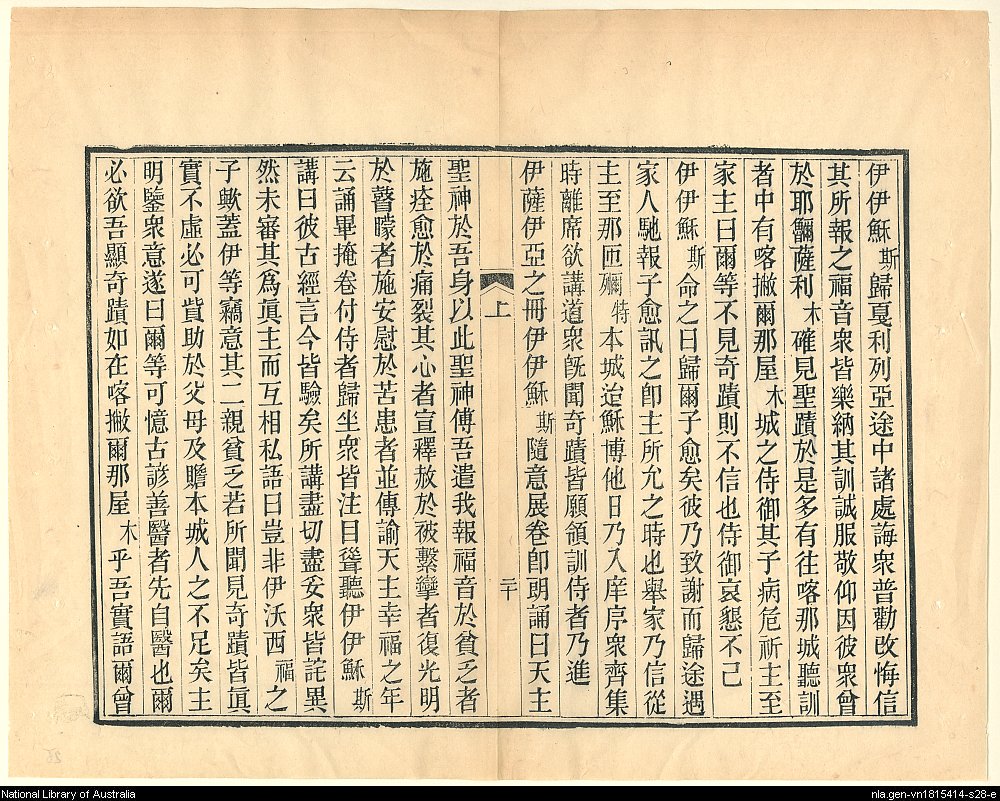 伊伊穌斯歸戛利列亞途中諸處誨衆普勸改悔信
其所報之福音衆皆樂納其訓誠服敬仰因彼衆曾
於耶鸓薩利木確見聖蹟於是多有往喀那城聽訓
者中有喀撇爾那屋木城之侍御其子病危祈主至
家主曰爾等不見奇蹟則不信也侍御哀懇不已
伊伊穌斯命之曰歸爾子愈矣彼乃致謝而歸途遇
家人馳報子愈訊之卽主所允之時也舉家乃信從
主至那匝殢特本城迨穌博他日乃入庠序衆齊集
時離席欲講道衆旣聞奇蹟皆願領訓侍者乃進
伊薩伊亞之冊伊伊穌斯隨意展卷卽朗誦曰天主
上
二十
聖神於吾身以此聖神傅吾遣我報福音於貧乏者
施痊愈於痛裂其心者宣釋放於被繫攣者復光明
於瞽矇者施安慰於苦患者並傳諭天主幸福之年
云誦畢掩卷付侍者歸坐衆皆注目聳聽伊伊穌斯
講曰彼古經言今皆驗矣所講盡切盡妥衆皆詫異
然未審其爲眞主而互相私語曰豈非伊沃西福之
子歟蓋伊等竊意其二親貧乏若所聞見奇蹟皆眞
實不虛必可貲助於父母及贍本城人之不足矣主
明鑒衆意遂曰爾等可憶古諺善醫者先自醫也爾
必欲吾顯奇蹟如在喀撇爾那屋木乎吾實語爾曾
National Library of Australia
nla.gen-vn1815414-s28-e